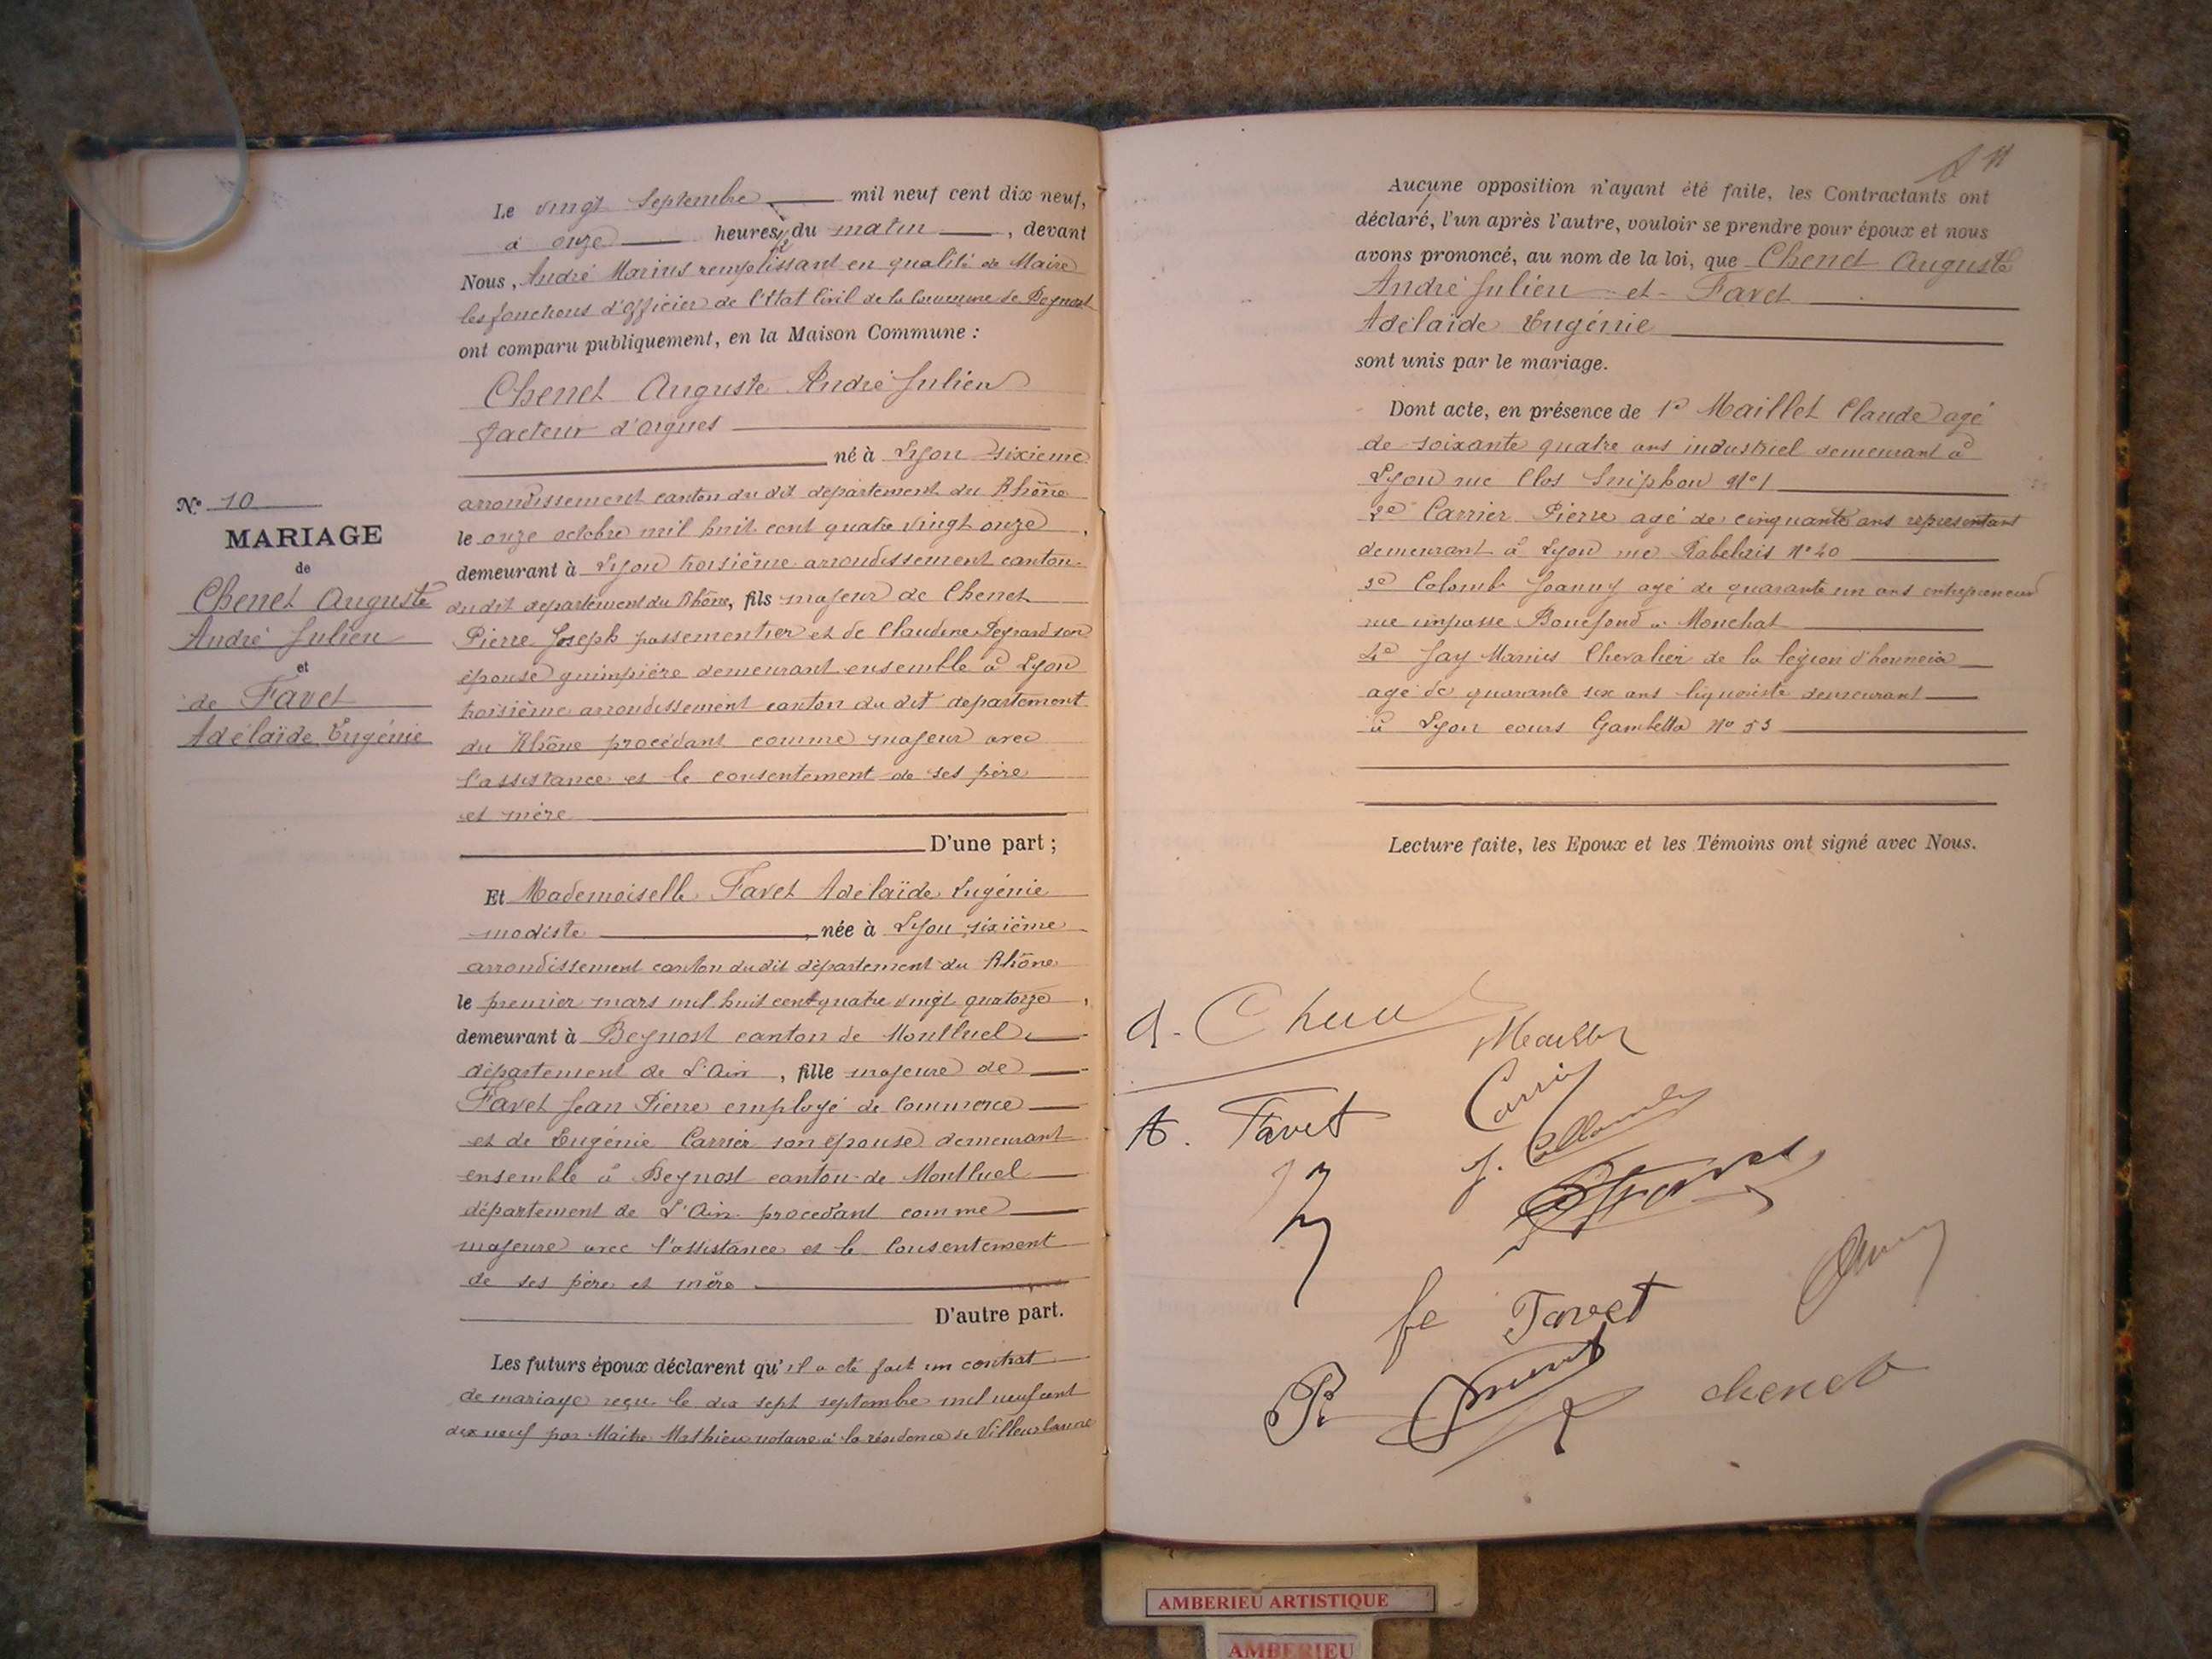 Le vingt Septembre mil neuf cent dix neuf,
à onze heures du matin, devant
Nous, André Marius remplissant en qualité de Maire
les fonctions d'officier de l'Etat Civil de la Commune de Beynost
ont comparu publiquement, en la Maison Commune :
Chenet Auguste André Julien
facteur d'orgues
né à Lyon sixième
arrondissement canton du dit département du Rhône
le onze octobre mil huit cent quatre vingt onze,
demeurant à Lyon troisième arrondissement canton
du dit département du Rhône, fils majeur de Chenet
Pierre Joseph passementier et de Claudine Peyrard son
épouse guimpière demeurant ensemble à Lyon
troisième arrondissement canton du dit département
du Rhône procédant comme majeur avec
l'assistance et le consentement de ses père
et mère
D'une part ;
Et Mademoiselle Favet Adélaïde Eugénie
modiste, née à Lyon sixième
arrondissement canton du dit département du Rhône
le premier mars mil huit cent quatre vingt quatorze,
demeurant à Beynost canton de Montluel
département de L'Ain, fille majeure de
Favet Jean Pierre employé de Commerce
et de Eugénie Carrier son épouse demeurant
ensemble à Beynost canton de Montluel
département de L'Ain procédant comme
majeure avec l'assistance et le Consentement
de ses père et mère
D'autre part.
Les futurs époux déclarent qu'il a été fait un contrat
de mariage reçu le dix sept septembre mil neuf cent
dix neuf par Maitre Mathieu notaire à la résidence de Villeurbanne
N° 10
MARIAGE
de
Chenet Auguste
André Julien
et
de Favet
Adélaïde Eugénie
11
Aucune opposition n'ayant été faite, les Contractants ont
déclaré, l'un après l'autre, vouloir se prendre pour époux et nous
avons prononcé, au nom de la loi, que Chenet Auguste
André Julien et Favet
Adélaïde Eugénie
sont unis par le mariage.
Dont acte, en présence de 1° Maillet Claude agé
de soixante quatre ans industriel demeurant à
Lyon rue Clos Suiphon N° 1
2° Carrier Pierre agé de cinquante ans représentant
demeurant à Lyon rue Rabelais N° 40
3° Colomb Joanny agé de quarante un ans entrepreneur
rue impasse Bonefond à Monchat
4° Jay Marius Chevalier de la légion d'honneur
agé de quarante six ans liquoriste demeurant
à Lyon cours Gambetta N° 53
Lecture faite, les Epoux et les Témoins ont signé avec Nous.
A. Chenet
Maillet
Carrier
A. Favet
fe Favet
chenet
AMBERIEU ARTISTIQUE
AMBERIEU